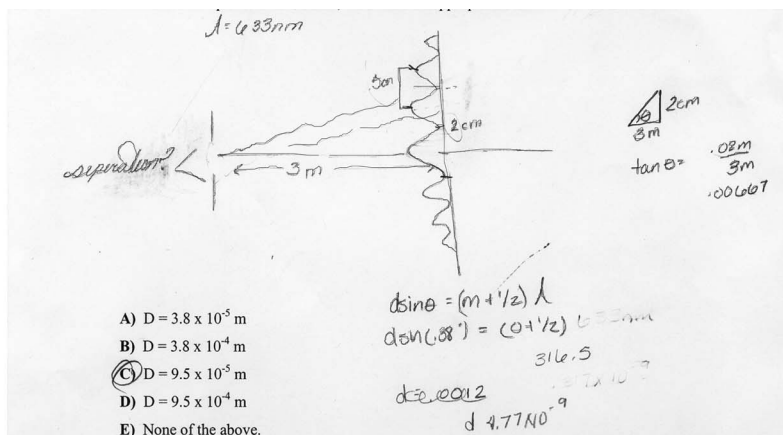 λ=633nm
5cm
2cm
3m
seperation?
2cm
θ
3m
tan θ= .02m
3m
.00667
dsinθ = (m+1/2) λ
dsin(.38°) = (0+1/2) 633nm
316.5
d=.0012
d 4.77x10⁻⁹
A) D = 3.8 x 10⁻⁵ m
B) D = 3.8 x 10⁻⁴ m
C) D = 9.5 x 10⁻⁵ m
D) D = 9.5 x 10⁻⁴ m
E) None of the above.